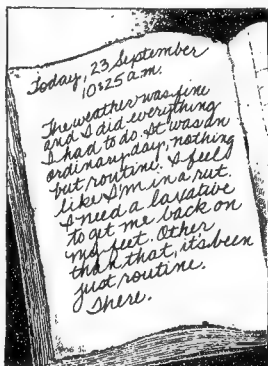 Today, 23, September
10:25 a.m.
The weather was fine
and I did everything
I had to do. It was an
ordinary day, nothing
but routine. I feel
like I'm in a rut.
I need a laxative
to get me back on
my feet. Other
than that, it's been
just routine.
There.